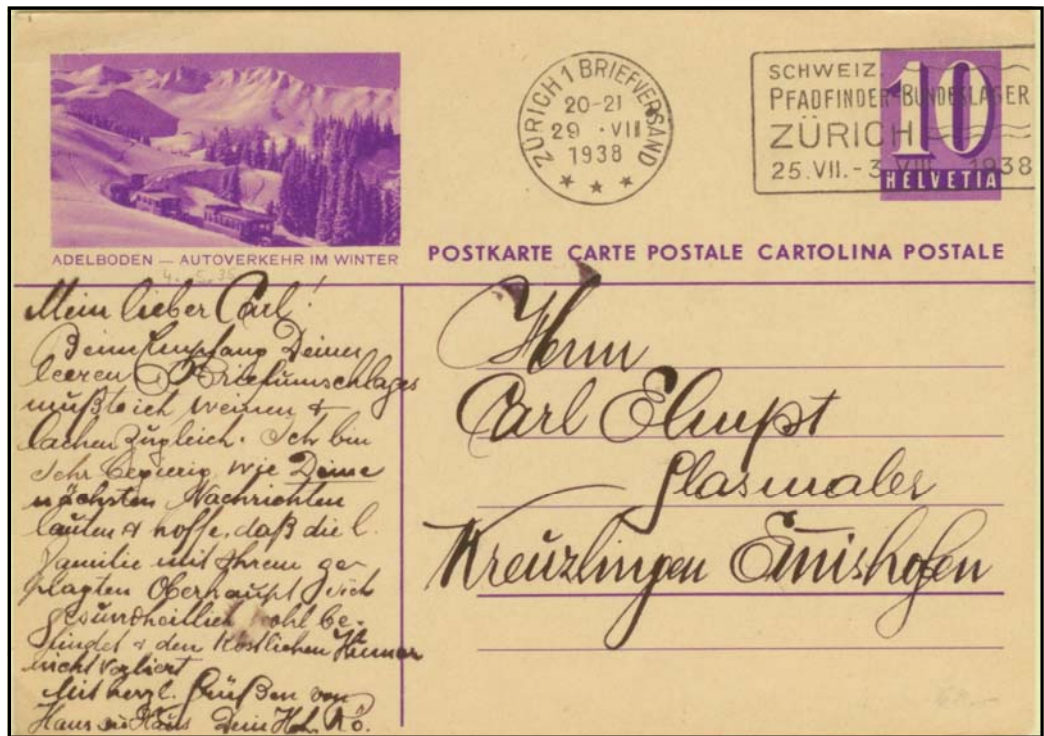 ZÜRICH 1 BRIEFVERSAND
20-21
29 · VII
1938
SCHWEIZ.
PFADFINDER-BUNDESLAGER
ZÜRICH
25.VII.-3.VIII.1938
10
HELVETIA
ADELBODEN — AUTOVERKEHR IM WINTER
POSTKARTE CARTE POSTALE CARTOLINA POSTALE
Mein lieber Carl!
Beim Empfang Deines
leeren Briefumschlages
mußte ich weinen &
lachen zugleich. Ich bin
sehr begierig wie Deine
nächsten Nachrichten
lauten & hoffe, daß die l.
Familie mit Ihrem ge-
plagten Oberhaupt sich
gesundheitlich wohl be-
findet & den köstlichen Humor
nicht verliert
Mit herzl. Grüßen von
Haus zu Haus Dein
Herrn
Carl Elmpt
Glasmaler
Kreuzlingen Emishofen